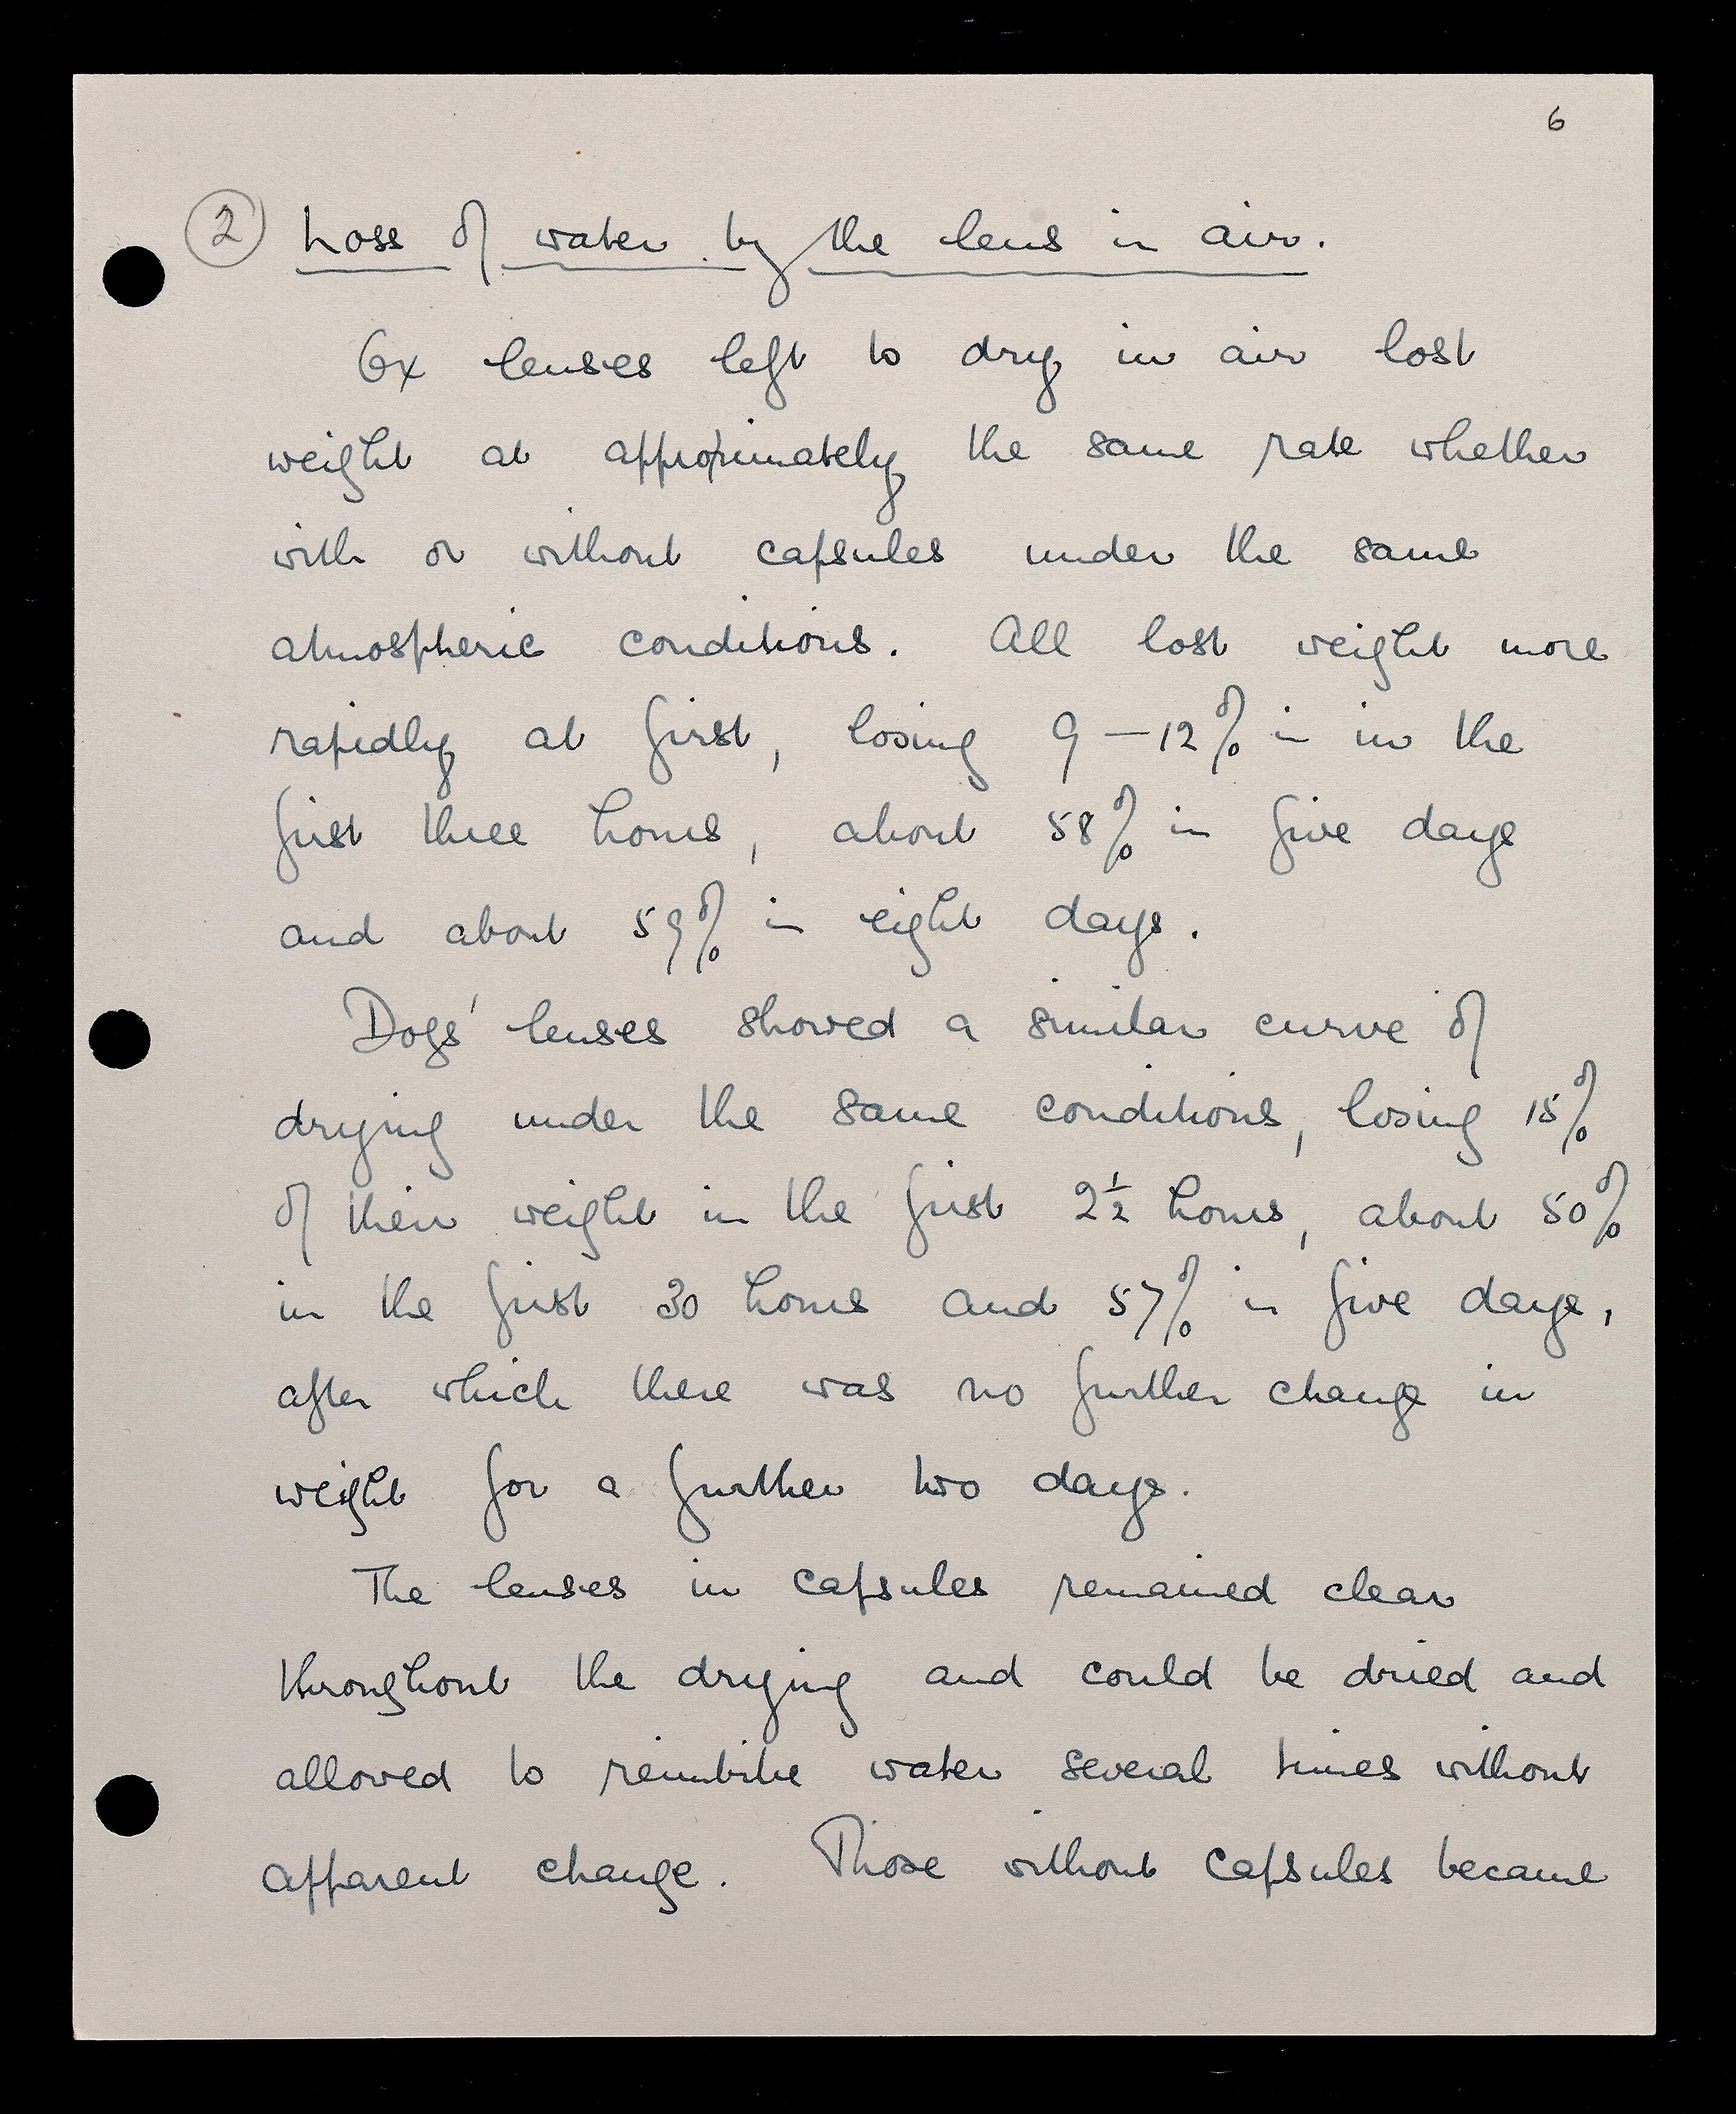 6
2 Loss of water by the lens in air.
Ox lenses left to dry in air lost
weight at approximately the same rate whether
with or without capsules under the same
atmospheric conditions. All lost weight more
rapidly at first, losing 9 – 12% in in the
first three hours, about 58% in five days
and about 59% in eight days.
Dogs' lenses showed a similar curve of
drying under the same conditions, losing 15%
of their weight in the first 2½ hours, about 50%
in the first 30 hours and 57% in five days,
after which there was no further change in
weight for a further two days.
The lenses in capsules remained clear
throughout the drying and could be dried and
allowed to reimbibe water several times without
apparent change. Those without capsules became